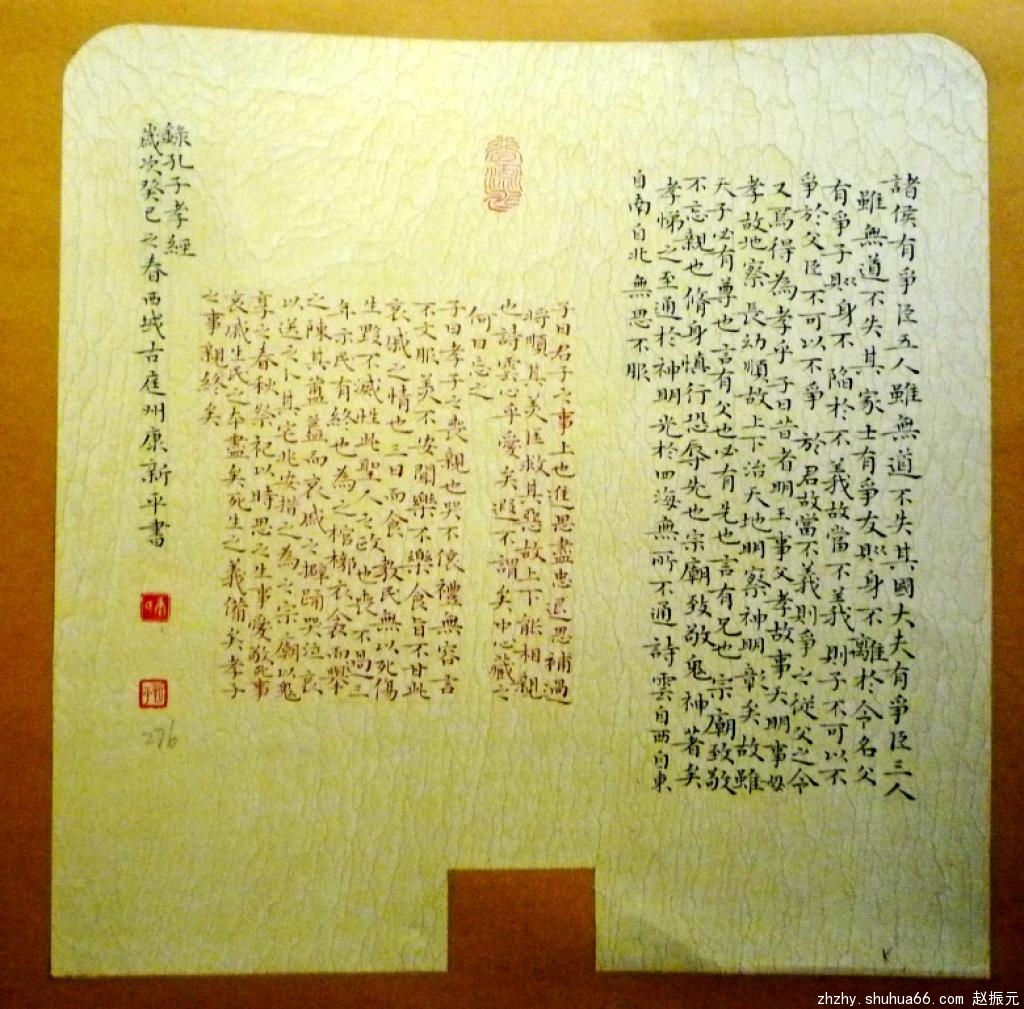 諸侯有爭臣五人雖無道不失其國大夫有爭臣三人
雖無道不失其家士有爭友則身不離於令名父
有爭子則身不陷於不義故當不義則子不可以不
爭於父臣不可以不爭於君故當不義則爭之從父之令
又焉得為孝乎子曰昔者明王事父孝故事天明事母
孝故地察長幼順故上下治天地明察神明彰矣故雖
天子必有尊也言有父也必有先也言有兄也宗廟致敬
不忘親也脩身慎行恐辱先也宗廟致敬鬼神著矣
孝悌之至通於神明光於四海無所不通詩雲自西自東
自南自北無思不服
子曰君子之事上也進思盡忠退思補過
將順其美匡救其惡故上下能相親
也詩雲心乎愛矣遐不謂矣中心藏之
何日忘之
子曰孝子之喪親也哭不偯禮無容言
不文服美不安聞樂不樂食旨不甘此
哀戚之情也三日而食教民無以死傷
生毀不滅性此聖人之政也喪不過三
年示民有終也為之棺槨衣衾而舉
之陳其簠簋而哀戚之擗踊哭泣哀
以送之卜其宅兆安措之為之宗廟以鬼
享之春秋祭祀以時思之生事愛敬死事
哀戚生民之本盡矣死生之義備矣孝子
之事親終矣
錄孔子孝經
歲次癸巳之春西域古庭州康新平書
276
zhzhy.shuhua66.com 赵振元